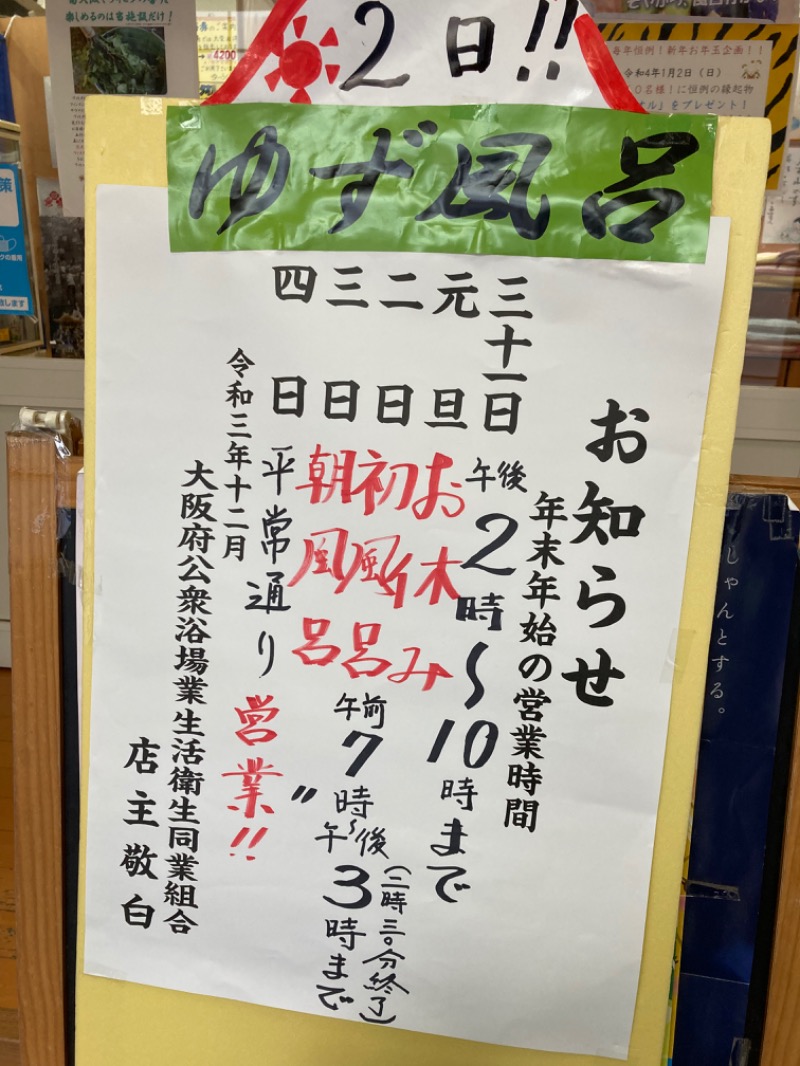 2日!!
ゆず風呂
お知らせ
年末年始の営業時間
三十一日 午後2時〜10時まで
元旦 お休み
二日 初風呂 午前7時〜午後3時まで(二時三〇分終了)
三日 朝風呂 〃
四日 平常通り営業!!
令和三年十二月
大阪府公衆浴場業生活衛生同業組合
店主敬白
楽しめるのは当施設だけ!
4200
毎年恒例!新年お年玉企画!!
令和4年1月2日(日)
0名様!に恒例の縁起物
オル」をプレゼント!
しゃんとする。